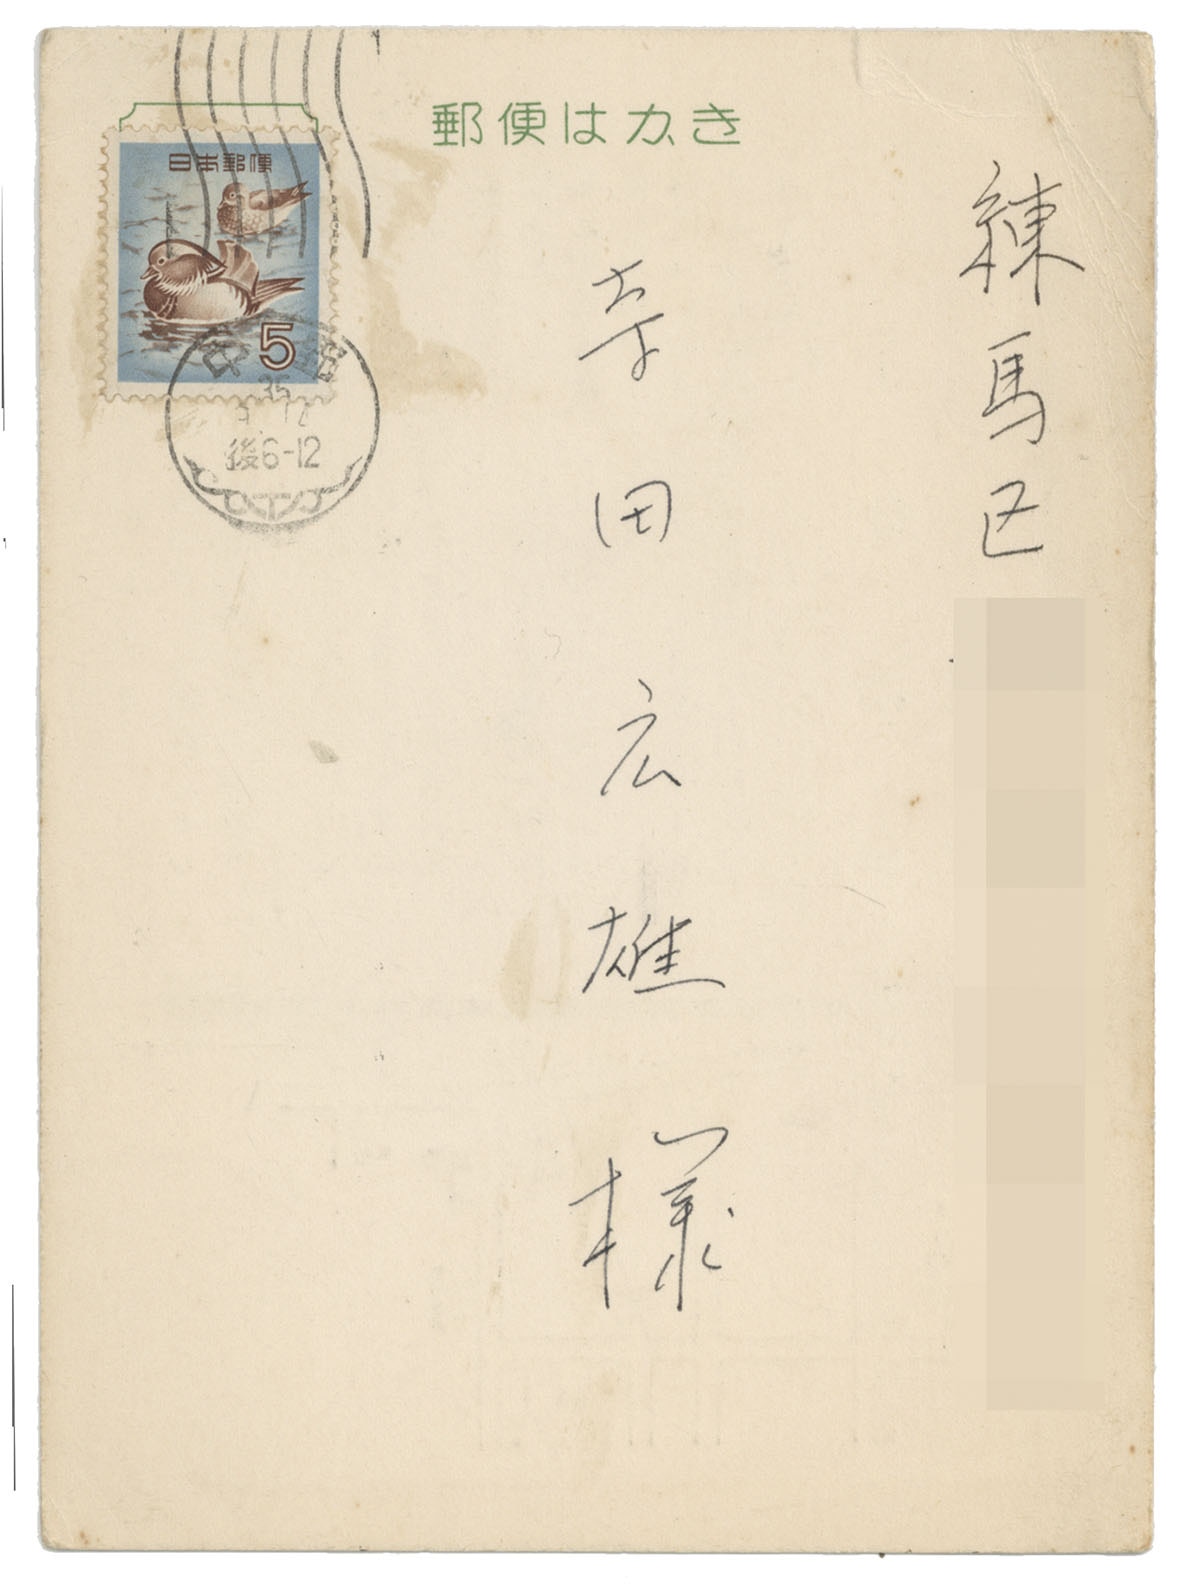 郵便はがき
日本郵便
5
35
後6-12
練馬区
寺田広雄様